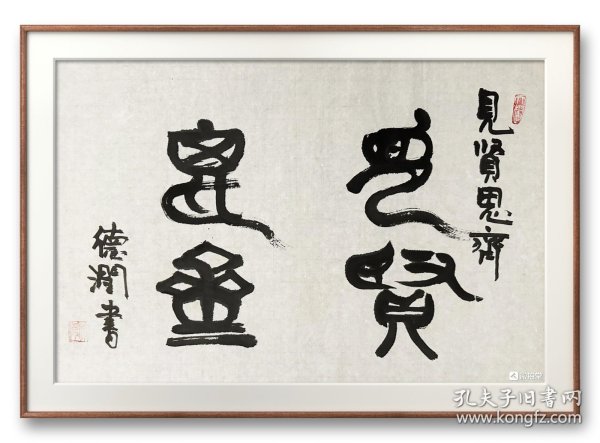 見賢思齊
見賢
思齊
德潤書
孔夫子旧书网
www.kongfz.com